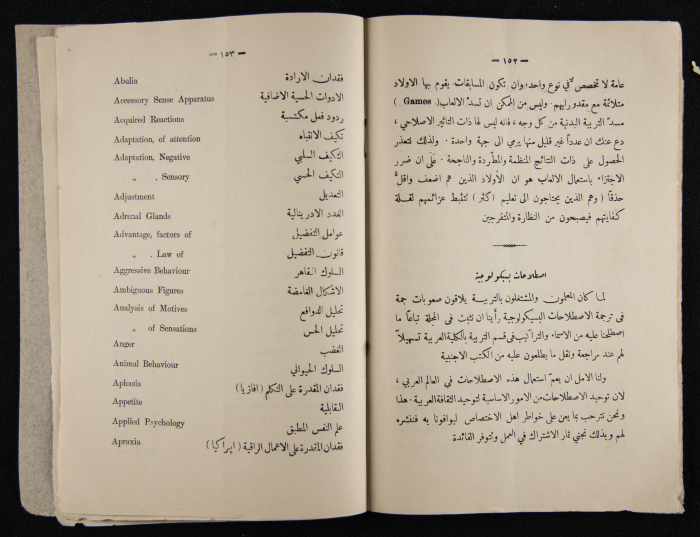 — ١٥٢ —
عامة لا تخصص في نوع واحد، وان تكون المسابقات يقوم بها الاولاد
متلائمة مع مقدورايهم. وليس من الممكن ان تسدّ الالعاب ( Games )
مسدّ التربية البدنية من كل وجه، فانه ليس لها ذات التاثير الاصلاحي،
دع عنك ان عدداً غير قليل منها يرمي الى جهة واحدة. ولذلك نتعذر
الحصول على ذات النتائج المنظمة والمطّردة والناجعة. على ان ضرر
الاجتزاء باستعمال الالعاب هو ان الأولاد الذين هم اضعف واقلُّ
حذقاً ( وهم الذين يحتاجون الى تعليم اكثر ) تتثبط عزائمهم لقلة
كفايتهم فيصبحون من النظارة والمتفرجين
اصطلاحات بسيكولوجية
لما كان المعلمون والمشتغلون بالتربية يلاقون صعوبات جمة
في ترجمة الاصطلاحات البسيكولوجية رأينا ان نثبت في المجلة تباعاً ما
اصطلحنا عليه من الاسماء والتراكيب في قسم التربية بالكلية العربية تسهيلاً
لهم عند مراجعة ونقل ما يطلعون عليه من الكتب الاجنبية
ولنا الامل ان يعمّ استعمال هذه الاصطلاحات في العالم العربي،
لان توحيد الاصطلاحات من الامور الاساسية لتوحيد الثقافة العربية. هذا
ونحن نترحب بما يعن على خواطر اهل الاختصاص ليوافونا به فننشره
لهم وبذلك نجني ثمار الاشتراك في العمل وتتوفر الفائدة
— ١٥٣ —
Abulia فقدان الارادة
Accessory Sense Apparatus الادوات الحسية الاضافية
Acquired Reactions ردود فعل مكتسبة
Adaptation, of attention تكيف الانتباه
Adaptation, Negative التكيف السلبي
„ , Sensory التكيف الحسي
Adjustment التعديل
Adrenal Glands الغدد الادرينالية
Advantage, factors of عوامل التفضيل
„ . Law of قانون التفضيل
Aggressive Behaviour السلوك القاهر
Ambiguous Figures الاشكال الغامضة
Analysis of Motives تحليل الدوافع
„ of Sensations تحليل الحس
Anger الغضب
Animal Behaviour السلوك الحيواني
Aphasia فقدان المقدرة على التكلم ( افازيا )
Appetite القابلية
Applied Psychology علم النفس المطبق
Apraxia فقدان المقدرة على الاعمال الراقية ( ابراكيا )